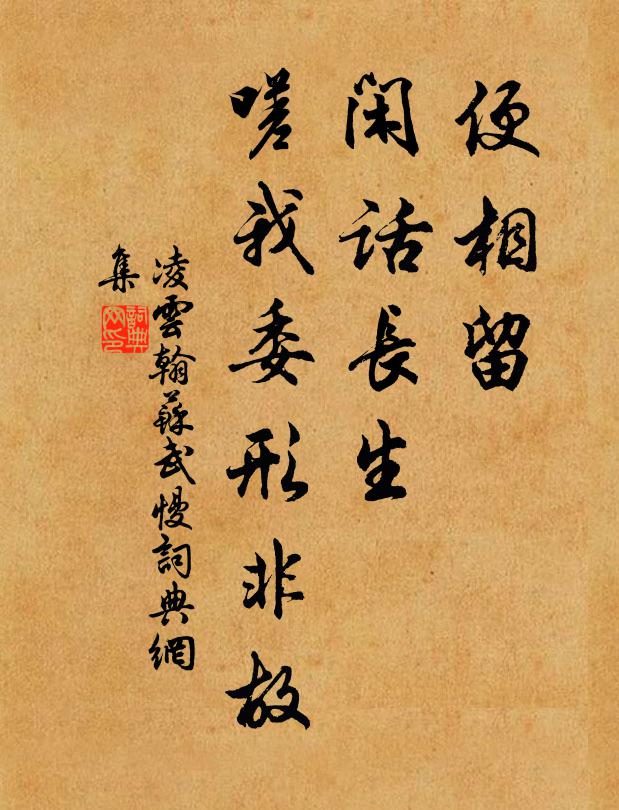 便相留
閑話長生
嗟我委形非故
凌雲翰蘇武慢詞典網
集
詞典
网印